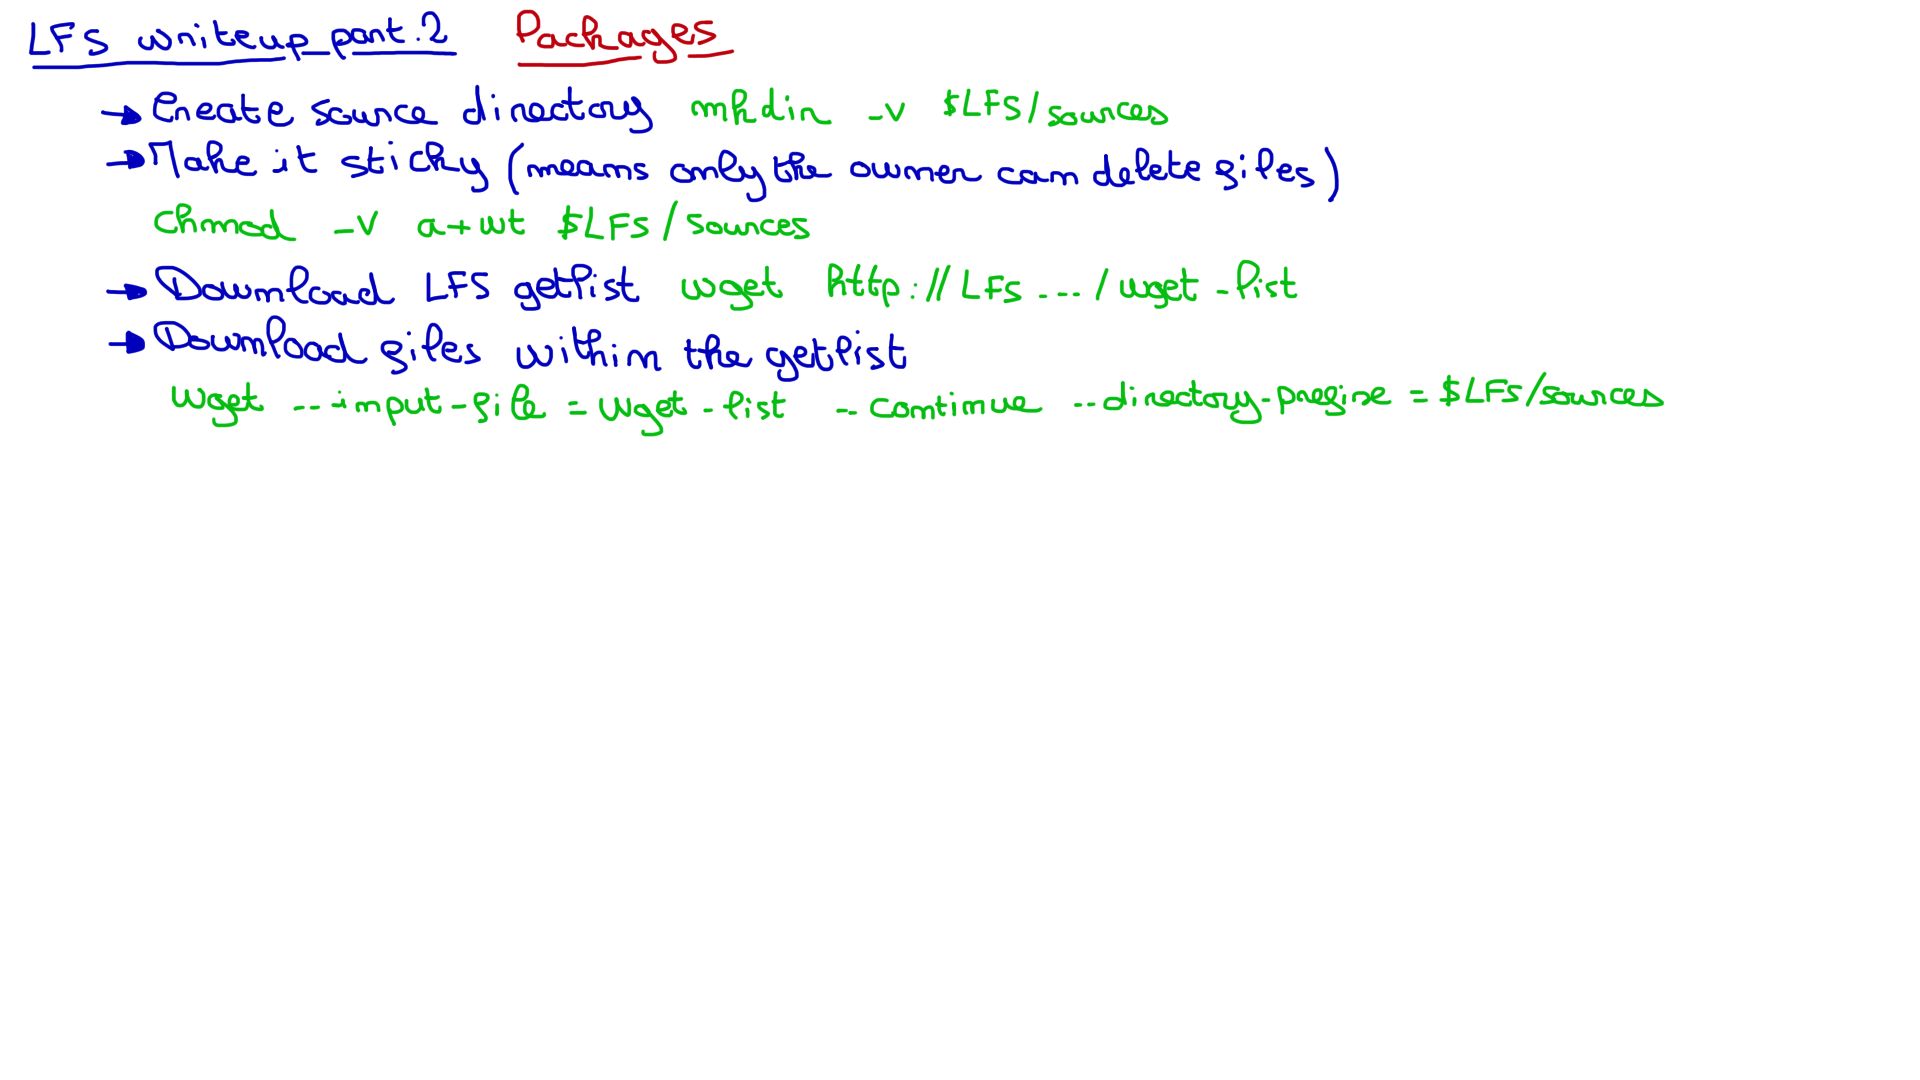 LFS writeup part.2 Packages
→ Create source directory mkdir -v $LFS/sources
→ Make it sticky (means only the owner can delete files)
chmod -v a+wt $LFS/sources
→ Download LFS getlist wget http://LFS.../wget-list
→ Download files within the getlist
wget --input-file=wget-list --continue --directory-prefixe=$LFS/sources